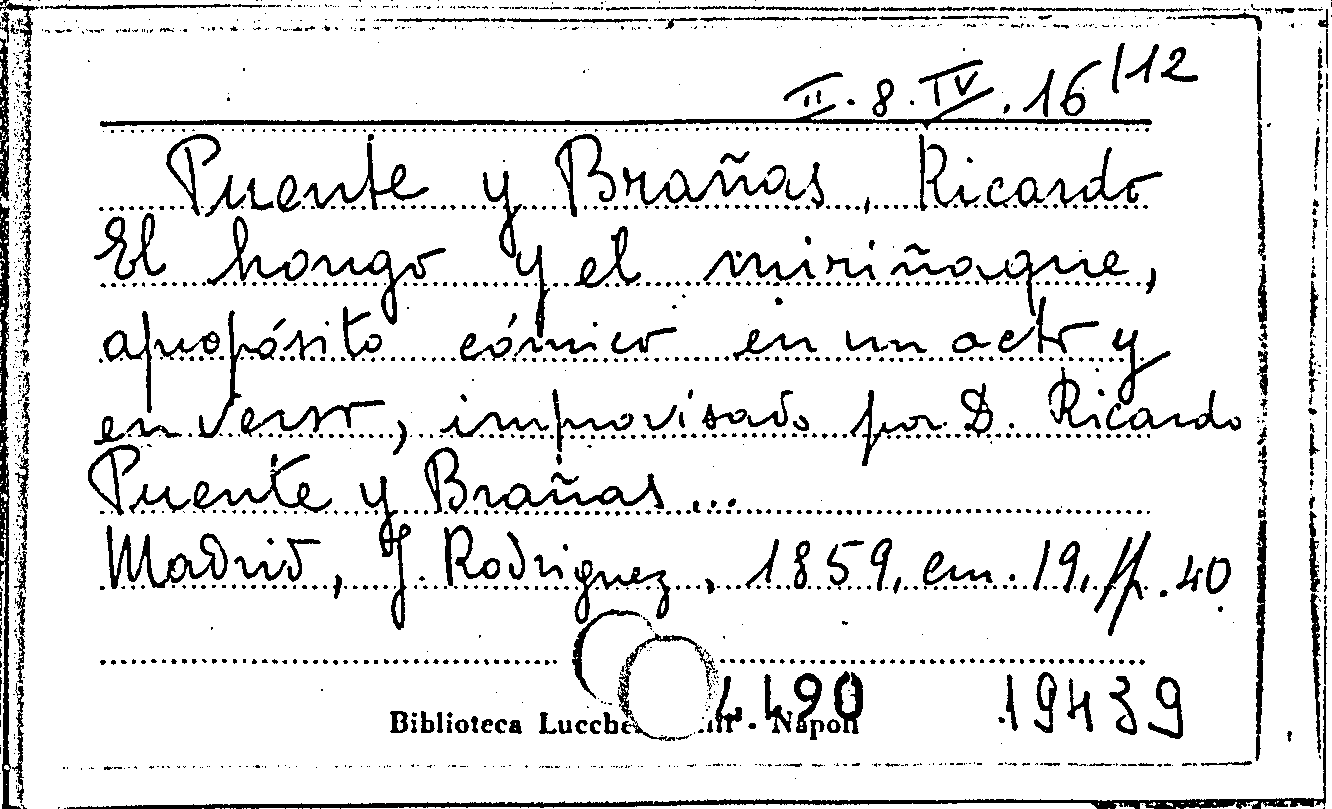 II.8.IV.16/12
Puente y Brañas, Ricardo
El hongo y el miriñaque,
apropósito cómico en un acto y
en verso, improvisado por D. Ricardo
Puente y Brañas...
Madrid, J. Rodriguez, 1859, cm. 19, pp. 40
490 19439
Biblioteca - Napoli